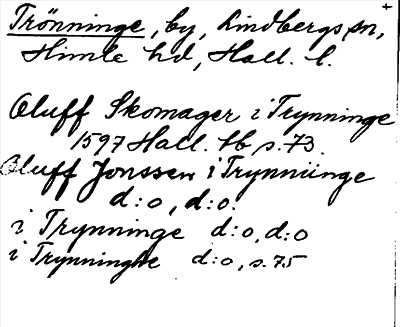 Trönninge, by, Lindbergs sn,
Himle hd, Hall. l.
Oluff Skomager i Trynninge
1597 Hall. tb s. 73.
Oluff Jonssen i Trynniinge
d:o, d:o.
i Trynninge d:o, d:o
i Trynninghe d:o, s. 75